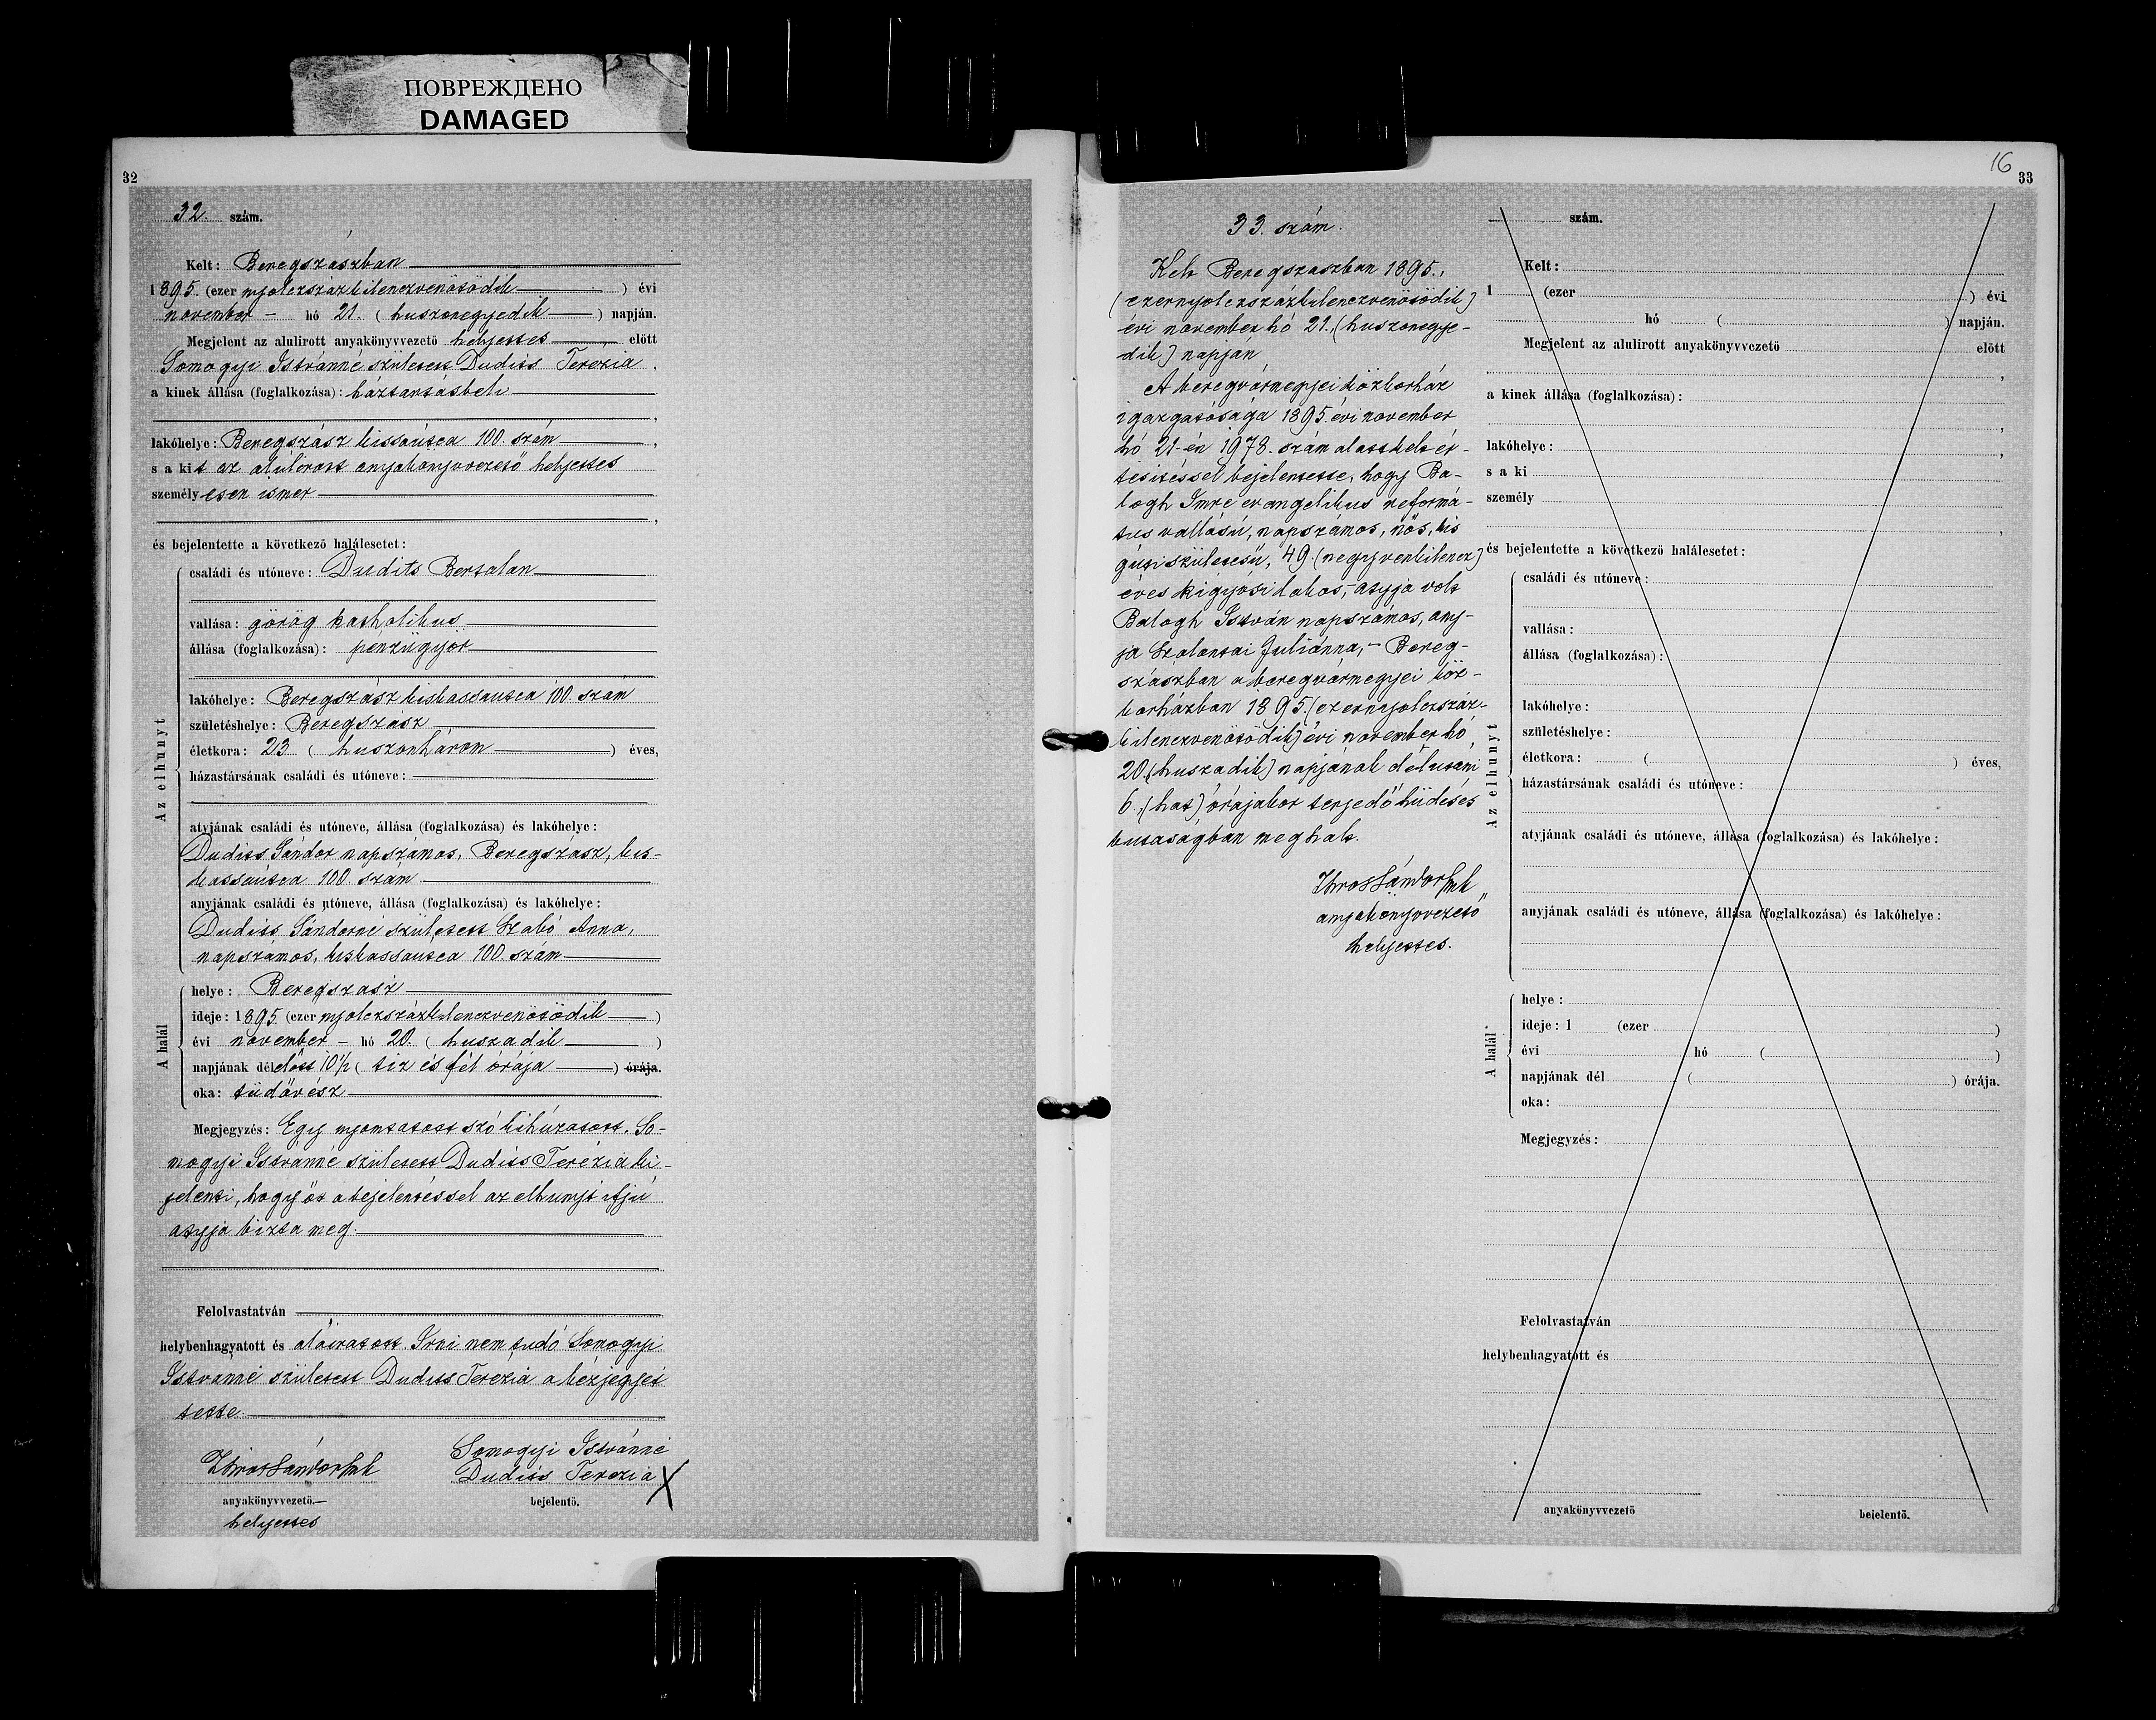 ПОВРЕЖДЕНО
DAMAGED
32
32. szám.
Kelt: Beregszászban
1895. (ezer nyolczszázkilenczvenötödik) évi
november - hó 21. (huszonegyedik) napján.
Megjelent az alulirott anyakönyvvezető helyettes előtt
Somogyi Istvánné született Dudits Terézia
a kinek állása (foglalkozása): háztartásbeli
,
lakóhelye: Beregszász 100. szám,
s a kit az alulirott anyakönyvvezető helyettes
személyesen ismer
,
és bejelentette a következő halálesetet:
Az elhunyt
családi és utóneve: Dudits Bertalan
vallása: görög katholikus
állása (foglalkozása): pénzügyőr
lakóhelye: Beregszász kiskassautcza 100. szám
születéshelye: Beregszász
életkora: 23 (huszonhárom) éves,
házastársának családi és utóneve:
atyjának családi és utóneve, állása (foglalkozása) és lakóhelye:
Dudits Sándor napszámos, Beregszász, kis-
kassautcza 100. szám
anyjának családi és utóneve, állása (foglalkozása) és lakóhelye:
Dudits Sándorné született Szabó Anna,
napszámos, kiskassautcza 100. szám
A halál
helye: Beregszász
ideje: 1895 (ezer nyolczszázkilenczvenötödik)
évi november - hó 20. (huszadik)
napjának délelőtt 10½ (tiz és fél órája) órája.
oka: tüdővész
Megjegyzés: Egy nyomtatott szó kihúzatott. So-
mogyi Istvánné született Dudits Terézia ki-
jelenti, hogy őt a bejelentéssel az elhunyt ifjú
atyja bizta meg.
Felolvastatván
helybenhagyatott és aláiratott. Irni nem tudó Somogyi
Istvánné született Dudits Terézia a kézjegyét
tette.
Somogyi Istvánné
Dudits Terézia X
anyakönyvvezető.
bejelentő.
helyettes
16
33
33. szám.
Kelt Beregszászban 1895.,
(ezernyolczszázkilenczvenötödik)
évi november hó 21. (huszonegye-
dik) napján
A beregvármegyei közkorház
igazgatósága 1895. évi november
hó 21-én 1978. szám alatt kelt ér-
tesitéssel bejelentette, hogy Ba-
logh Imre evangelikus reformá-
tus vallású, napszámos, nős, kis
születésű, 49. (negyvenkilencz)
éves kigyósi lakos, atyja volt
Balogh István napszámos, any-
ja Szalontai Juliánna, - Bereg-
szászban a beregvármegyei köz-
korházban 1895. (ezernyolczszáz-
kilenczvenötödik) évi november hó
20. (huszadik) napjának délutáni
6. (hat) órájakor terjedő hüdéses
butaságban meghalt.
anyakönyvvezető
helyettes.
szám.
Kelt:
1 (ezer ) évi
hó ( ) napján.
Megjelent az alulirott anyakönyvvezető előtt
,
a kinek állása (foglalkozása):
,
lakóhelye: ,
s a ki
személy
,
és bejelentette a következő halálesetet:
Az elhunyt
családi és utóneve:
vallása:
állása (foglalkozása):
lakóhelye:
születéshelye:
életkora: ( ) éves,
házastársának családi és utóneve:
atyjának családi és utóneve, állása (foglalkozása) és lakóhelye:
anyjának családi és utóneve, állása (foglalkozása) és lakóhelye:
A halál
helye:
ideje: 1 (ezer )
évi hó ( )
napjának dél ( ) órája.
oka:
Megjegyzés:
Felolvastatván
helybenhagyatott és
anyakönyvvezető
bejelentő.